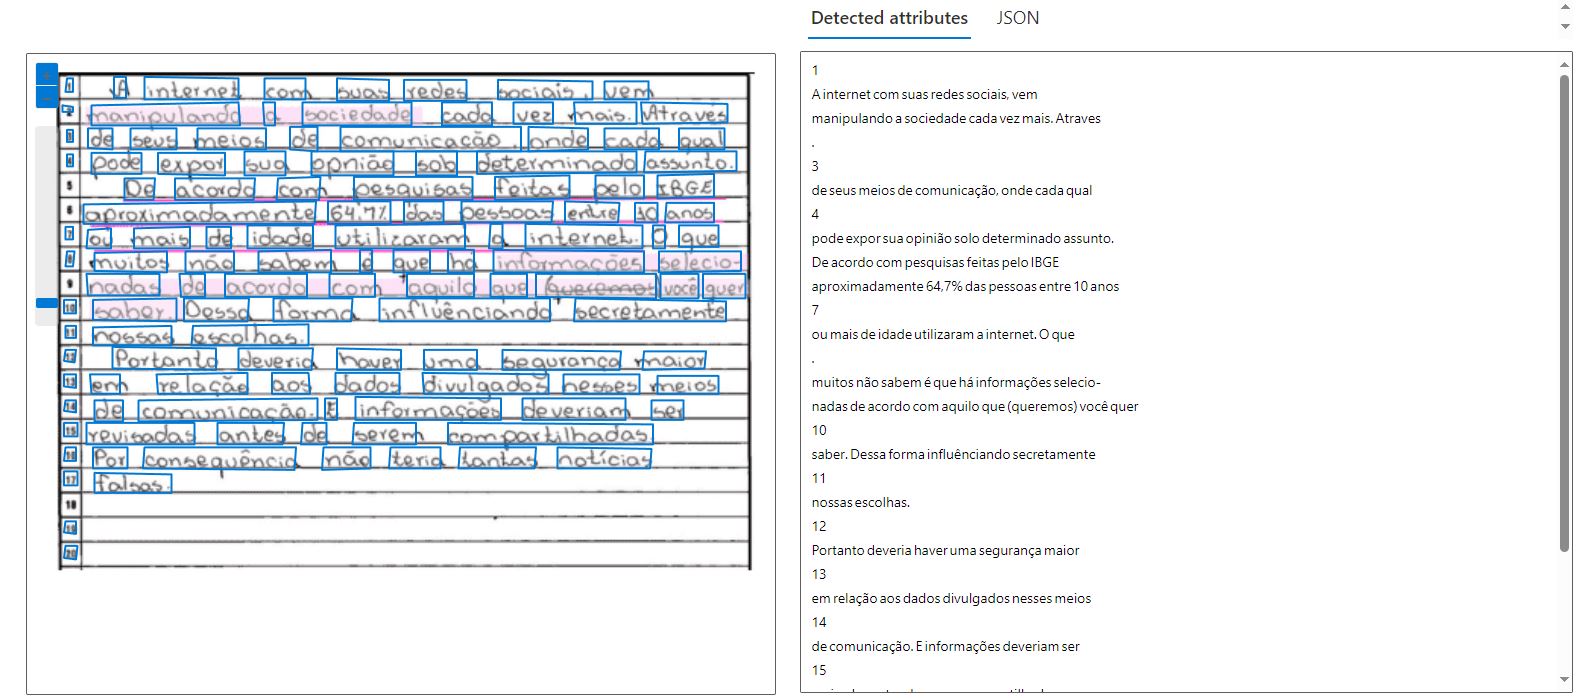 Detected attributes JSON
1 A internet com suas redes sociais, vem
manipulando a sociedade cada vez mais. Atraves
3 de seus meios de comunicação, onde cada qual
4 pode expor sua opnião sob determinado assunto.
5 De acordo com pesquisas feitas pelo IBGE
6 aproximadamente 64,7% das pessoas entre 10 anos
7 ou mais de idade utilizaram a internet. O que
8 muitos não sabem é que há informações selecio-
9 nadas de acordo com aquilo que (queremos) você quer
10 saber. Dessa forma influênciando secretamente
11 nossas escolhas.
12 Portanto deveria haver uma segurança maior
13 em relação aos dados divulgados nesses meios
14 de comunicação. E informações deveriam ser
15 revisadas antes de serem compartilhadas
16 Por consequência não teria tantas notícias
17 falsas.
18
19
20
1
A internet com suas redes sociais, vem
manipulando a sociedade cada vez mais. Atraves
.
3
de seus meios de comunicação, onde cada qual
4
pode expor sua opinião solo determinado assunto.
De acordo com pesquisas feitas pelo IBGE
aproximadamente 64,7% das pessoas entre 10 anos
7
ou mais de idade utilizaram a internet. O que
.
muitos não sabem é que há informações selecio-
nadas de acordo com aquilo que (queremos) você quer
10
saber. Dessa forma influênciando secretamente
11
nossas escolhas.
12
Portanto deveria haver uma segurança maior
13
em relação aos dados divulgados nesses meios
14
de comunicação. E informações deveriam ser
15